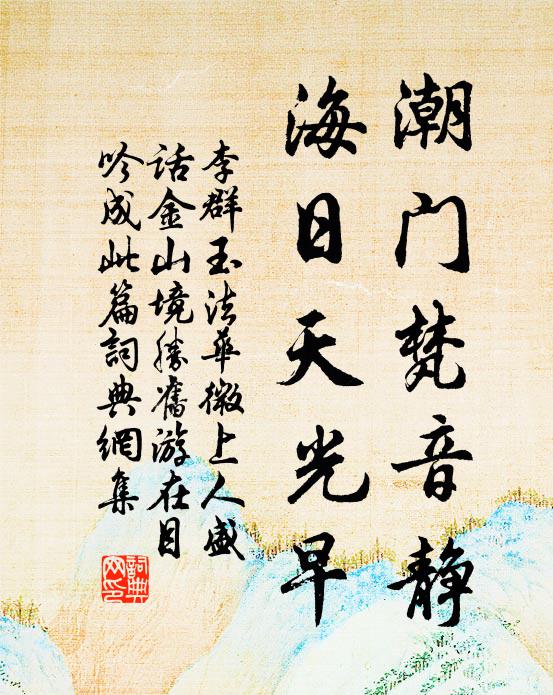 潮门梵音静
海日天光早
李群玉法华微上人盛
话金山境胜旧游在目
吟成此篇词典网集
词典网印